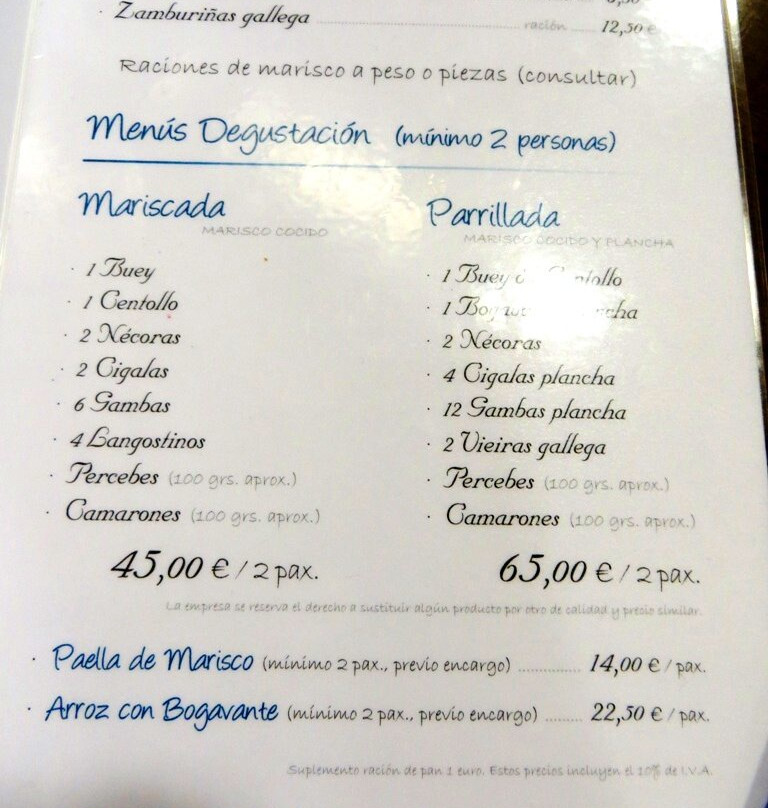 · Zamburiñas gallega ración 12,50 €
Raciones de marisco a peso o piezas (consultar)
Menús Degustación (mínimo 2 personas)
Mariscada
MARISCO COCIDO
· 1 Buey
· 1 Centollo
· 2 Nécoras
· 2 Cigalas
· 6 Gambas
· 4 Langostinos
· Percebes (100 grs. aprox.)
· Camarones (100 grs. aprox.)
45,00 € / 2 pax.
Parrillada
MARISCO COCIDO Y PLANCHA
· 1 Buey
· 1
· 2 Nécoras
· 4 Cigalas plancha
· 12 Gambas plancha
· 2 Vieiras gallega
· Percebes (100 grs. aprox.)
· Camarones (100 grs. aprox.)
65,00 € / 2 pax.
La empresa se reserva el derecho a sustituir algún producto por otro de calidad y precio similar.
· Paella de Marisco (mínimo 2 pax., previo encargo) ............. 14,00 € / pax.
· Arroz con Bogavante (mínimo 2 pax., previo encargo) ........ 22,50 € / pax.
Suplemento ración de pan 1 euro. Estos precios incluyen el 10% de I.V.A.